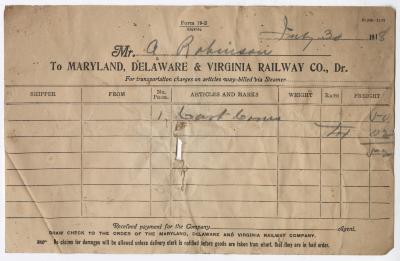 Form 19-S
July 3d 1918
Mr. A Robinson
To MARYLAND, DELAWARE & VIRGINIA RAILWAY CO., Dr.
For transportation charges on articles way-billed via Steamer
SHIPPER FROM No. Pkgs. ARTICLES AND MARKS WEIGHT RATE FREIGHT
1
tax 02
52
Received payment for the Company Agent.
DRAW CHECK TO THE ORDER OF THE MARYLAND, DELAWARE AND VIRGINIA RAILWAY COMPANY.
No claims for damages will be allowed unless delivery clerk is notified before goods are taken from wharf, that they are in bad order.